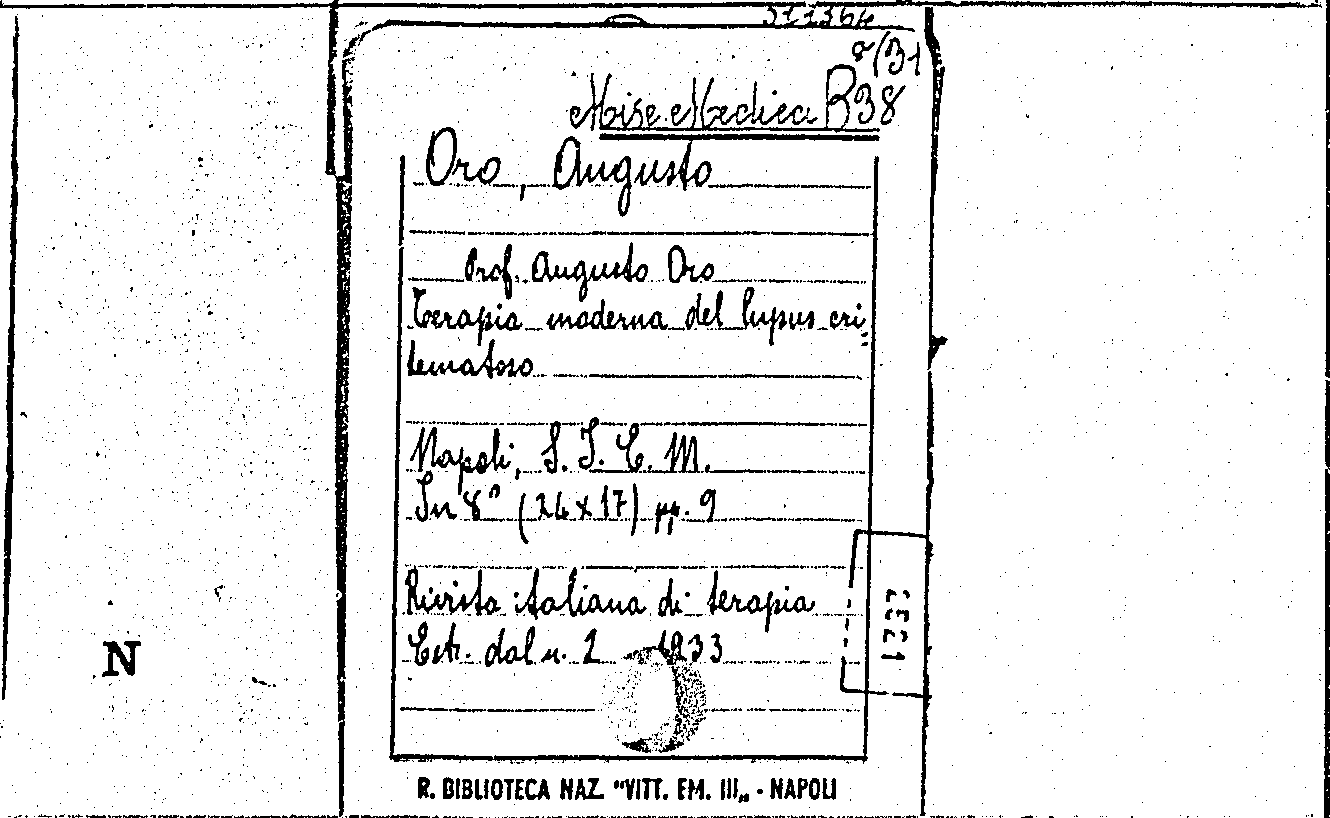 511364
Misc. Medica B 38
8/31
Oro, Augusto
Prof. Augusto Oro
Terapia moderna del lupus eri=
tematoso
Napoli, S. I. E. M.
In 8° (24 x 17) pp. 9
Rivista italiana di terapia
Estr. dal n. 2 1933
N
R. BIBLIOTECA NAZ. "VITT. EM. III„ - NAPOLI